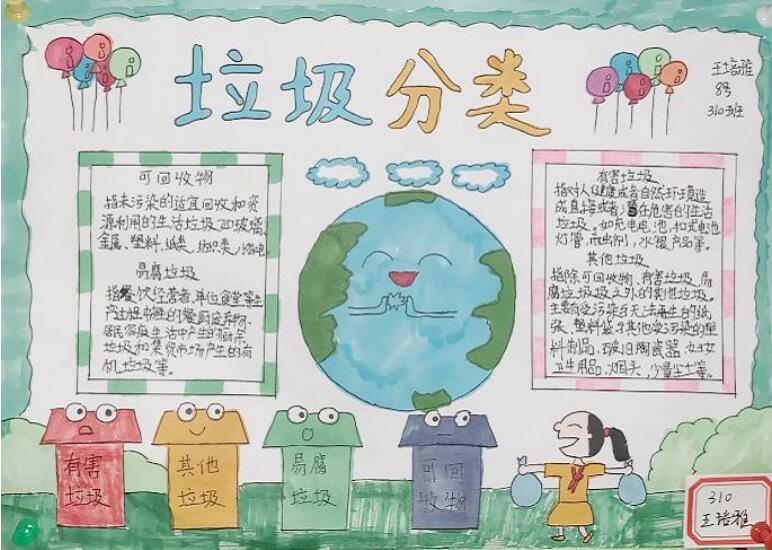 垃圾分类
王培雅
8号
310班
可回收物
指未污染的适宜回收和资
源利用的生活垃圾如玻璃
金属、塑料、纸类、纺织类、小家电
易腐垃圾
指餐饮经营者、单位食堂等生
产过程中产生的餐厨废弃物、
居民家庭生活中产生的
垃圾和集贸市场产生的有
机垃圾等。
有害垃圾
指对人健康或者自然环境造
成直接或者潜在危害的生活
垃圾。如充电电池、扣式电池
灯管、杀虫剂、水银产品等。
其他垃圾
指除可回收物、有害垃圾、易
腐垃圾圾之外的其他垃圾。
主要有受污染与无法再生的纸
张、塑料袋与其他受污染的塑
料制品、破旧陶瓷器、妇女
卫生用品、烟头、少量尘土等。
有害
垃圾
其他
垃圾
易腐
垃圾
可回
收物
310
王培雅